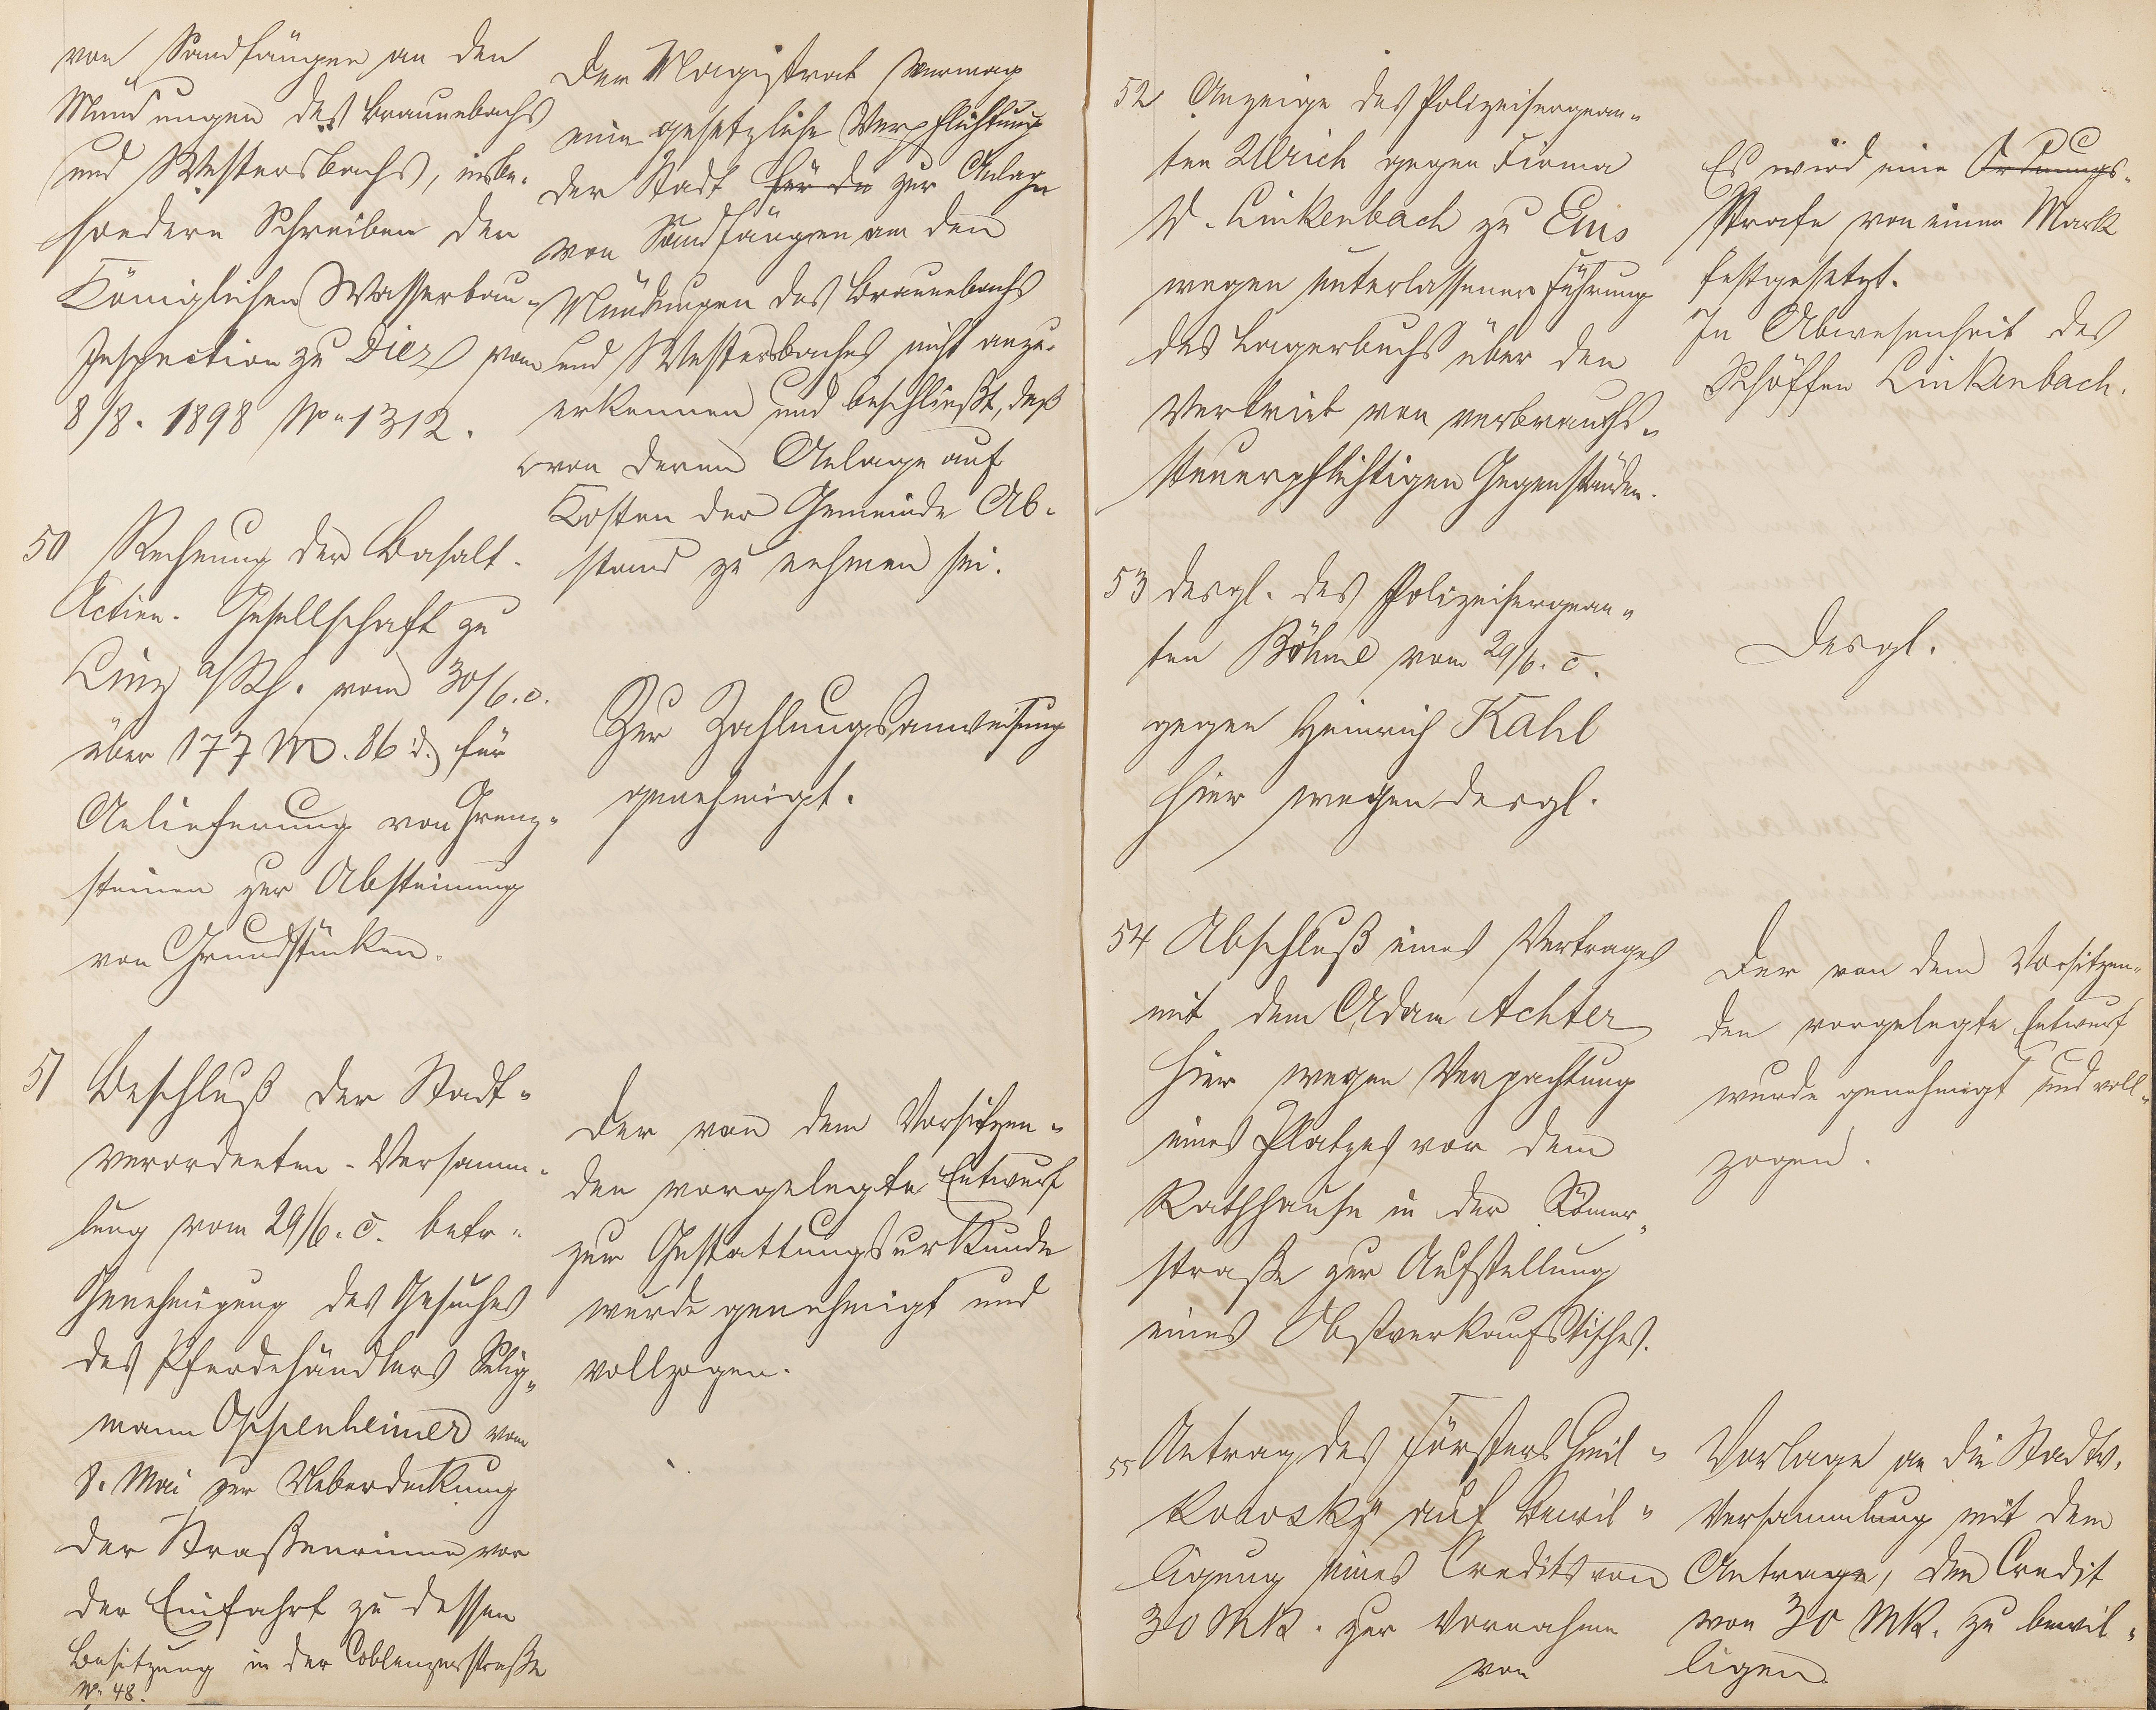 von Sandfängen an den
Mündungen des Braunebachs
und Westersbachs, insbe-
sondere Schreiben der
Königlichen Wasserbau-
Inspection zu Diez vom
8/8. 1898 No 1312.
Der Magistrat vermag
eine gesetzliche Verpflichtung
der Stadt für die zur Anlage
von Sandfängen an den
Mündungen des Braunebachs
und Westersbaches nicht anzu-
erkennen und beschließt, daß
von deren Anlage auf
Kosten der Gemeinde Ab-
stand zu nehmen sei.
50 Rechnung der Basalt-
Actien-Gesellschaft zu
Linz a/Rh. vom 30/6. c.
über 177 M. 86 d. für
Anlieferung von Grenz-
steinen zur Absteinung
von Grundstücken.
Zur Zahlungsanweisung
genehmigt.
51 Beschluß der Stadt-
verordneten-Versamm-
lung vom 29/6. c. betr.
Genehmigung des Gesuches
des Pferdehändlers Selig-
mann Oppenheimer vom
8. Mai zur Ueberdeckung
der Straßenrinne vor
der Einfahrt zu dessen
Besitzung in der Coblenzerstraße
No 48.
Der von dem Vorsitzen-
den vorgelegte Entwurf
zur Gestattungsurkunde
wurde genehmigt und
vollzogen.
52 Anzeige des Polizeisergean-
ten Ulrich gegen Firma
W. Linkenbach zu Ems
wegen unterlassener Führung
des Lagerbuchs über den
Vertrieb von verbrauchs-
steuerpflichtigen Gegenständen.
Es wird eine Ordnungs-
Strafe von einer Mark
festgesetzt.
In Abwesenheit des
Schöffen Linkenbach.
53 desgl. des Polizeisergean-
ten Böhme vom 29/6. c.
gegen Heinrich Kahl
hier wegen desgl.
Desgl.
54 Abschluß eines Vertrages
mit dem Adam Achter
hier wegen Verpachtung
eines Platzes vor dem
Rathhause in der Römer-
straße zur Aufstellung
eines Obstverkaufstisches.
Der von dem Vorsitzen-
den vorgelegte Entwurf
wurde genehmigt und voll-
zogen.
55 Antrag des Försters
auf Bewil-
ligung eines Credits von
30 Mk. zur Vornahme
von
Vorlage an die Stadtv.
Versammlung mit dem
Antrage, den Credit
von 30 Mk. zu bewil-
ligen.